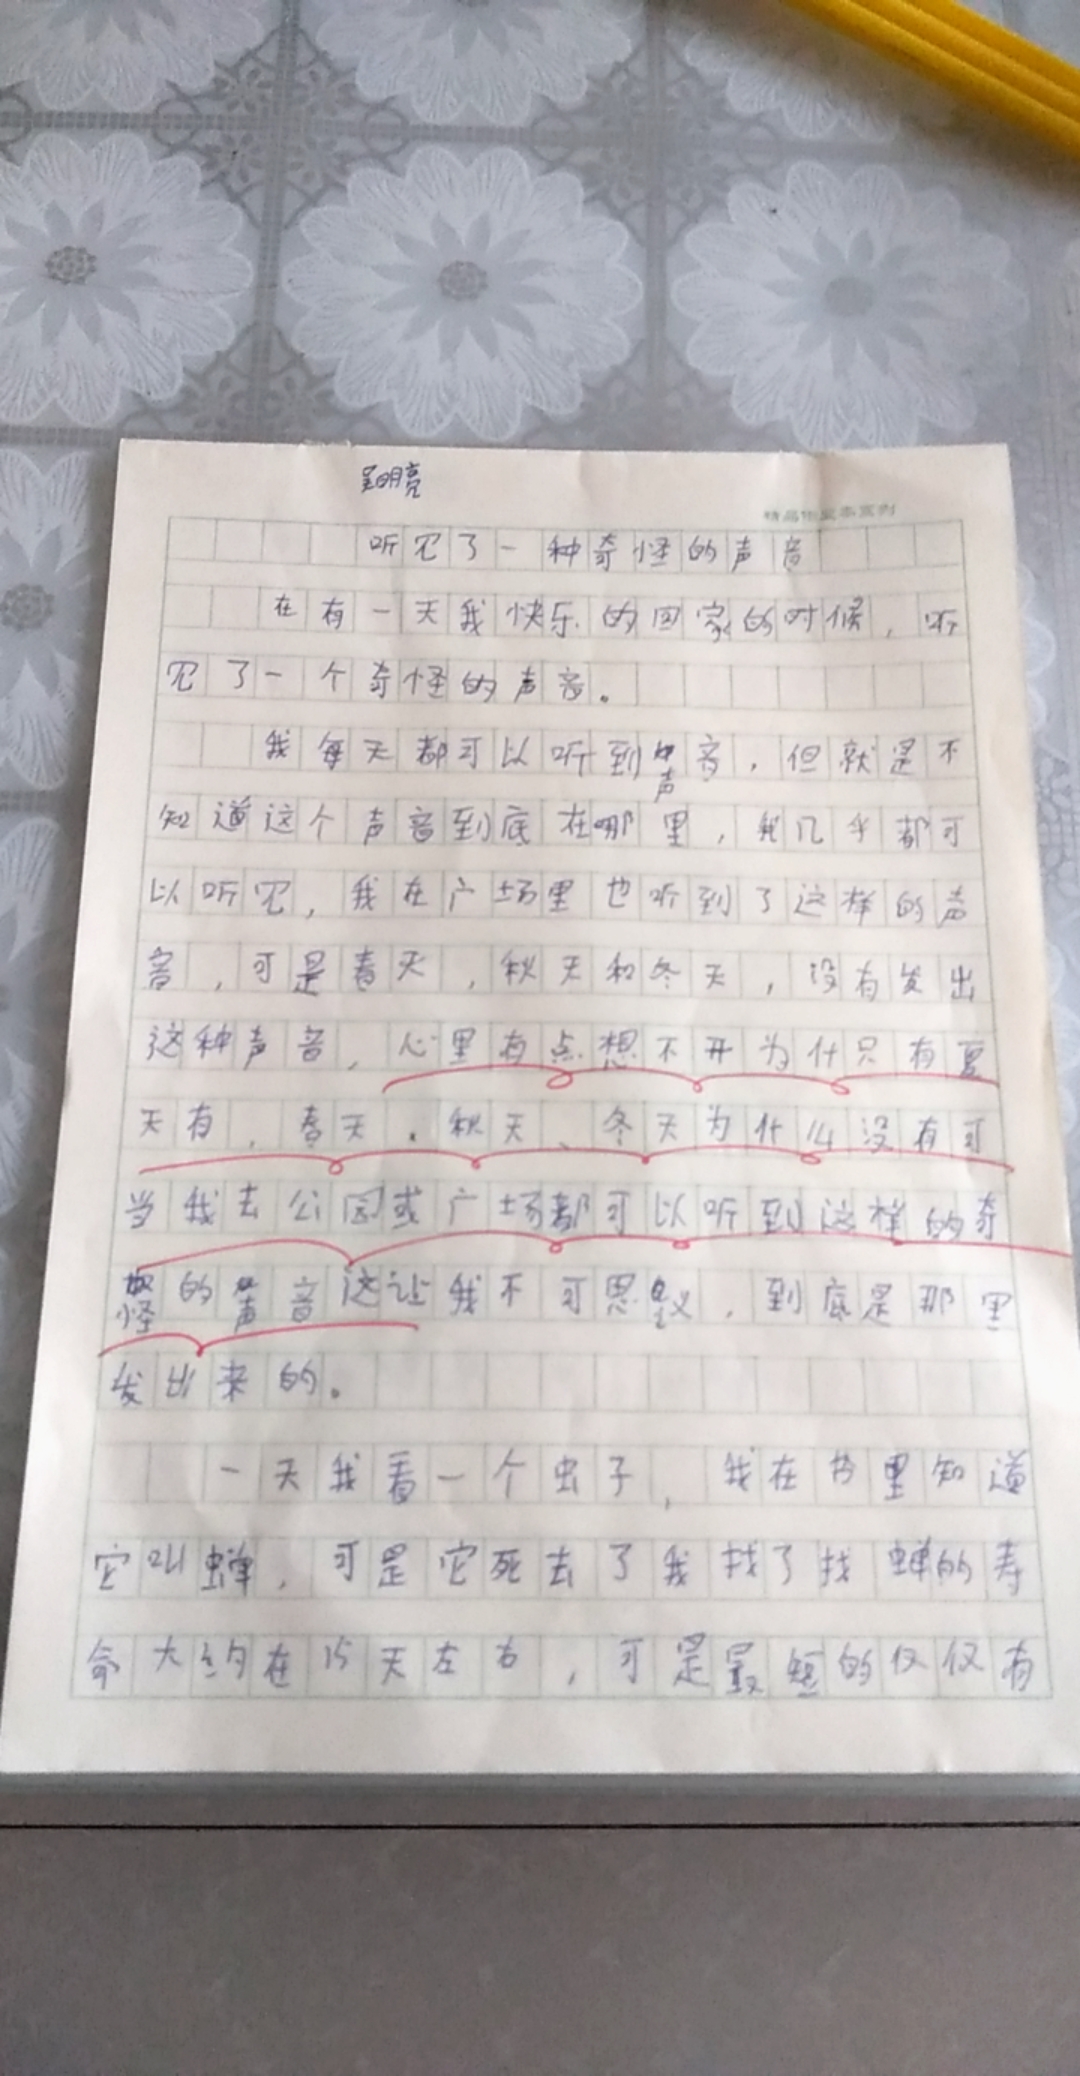 吴明亮
听见了一种奇怪的声音
在有一天我快乐的回家的时候，听
见了一个奇怪的声音。
我每天都可以听到声音，但就是不
知道这个声音到底在哪里，我几乎都可
以听见，我在广场里也听到了这样的声
音，可是春天，秋天和冬天，没有发出
这种声音，心里有点想不开为什只有夏
天有，春天、秋天、冬天为什么没有可
当我去公园或广场都可以听到这样的奇
怪的声音这让我不可思议，到底是那里
发出来的。
一天我看一个虫子，我在书里知道
它叫蝉，可是它死去了我找了找蝉的寿
命大约在15天左右，可是最短的仅仅有